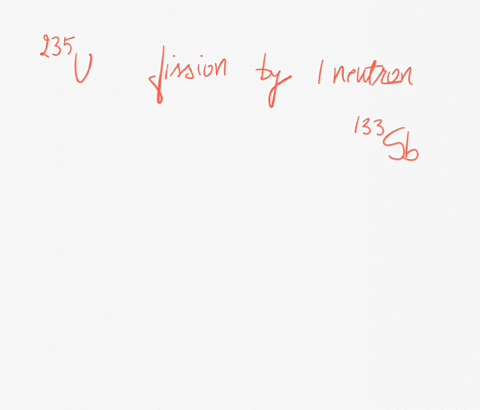 ²³⁵U fission by 1 neutron
¹³³Sb